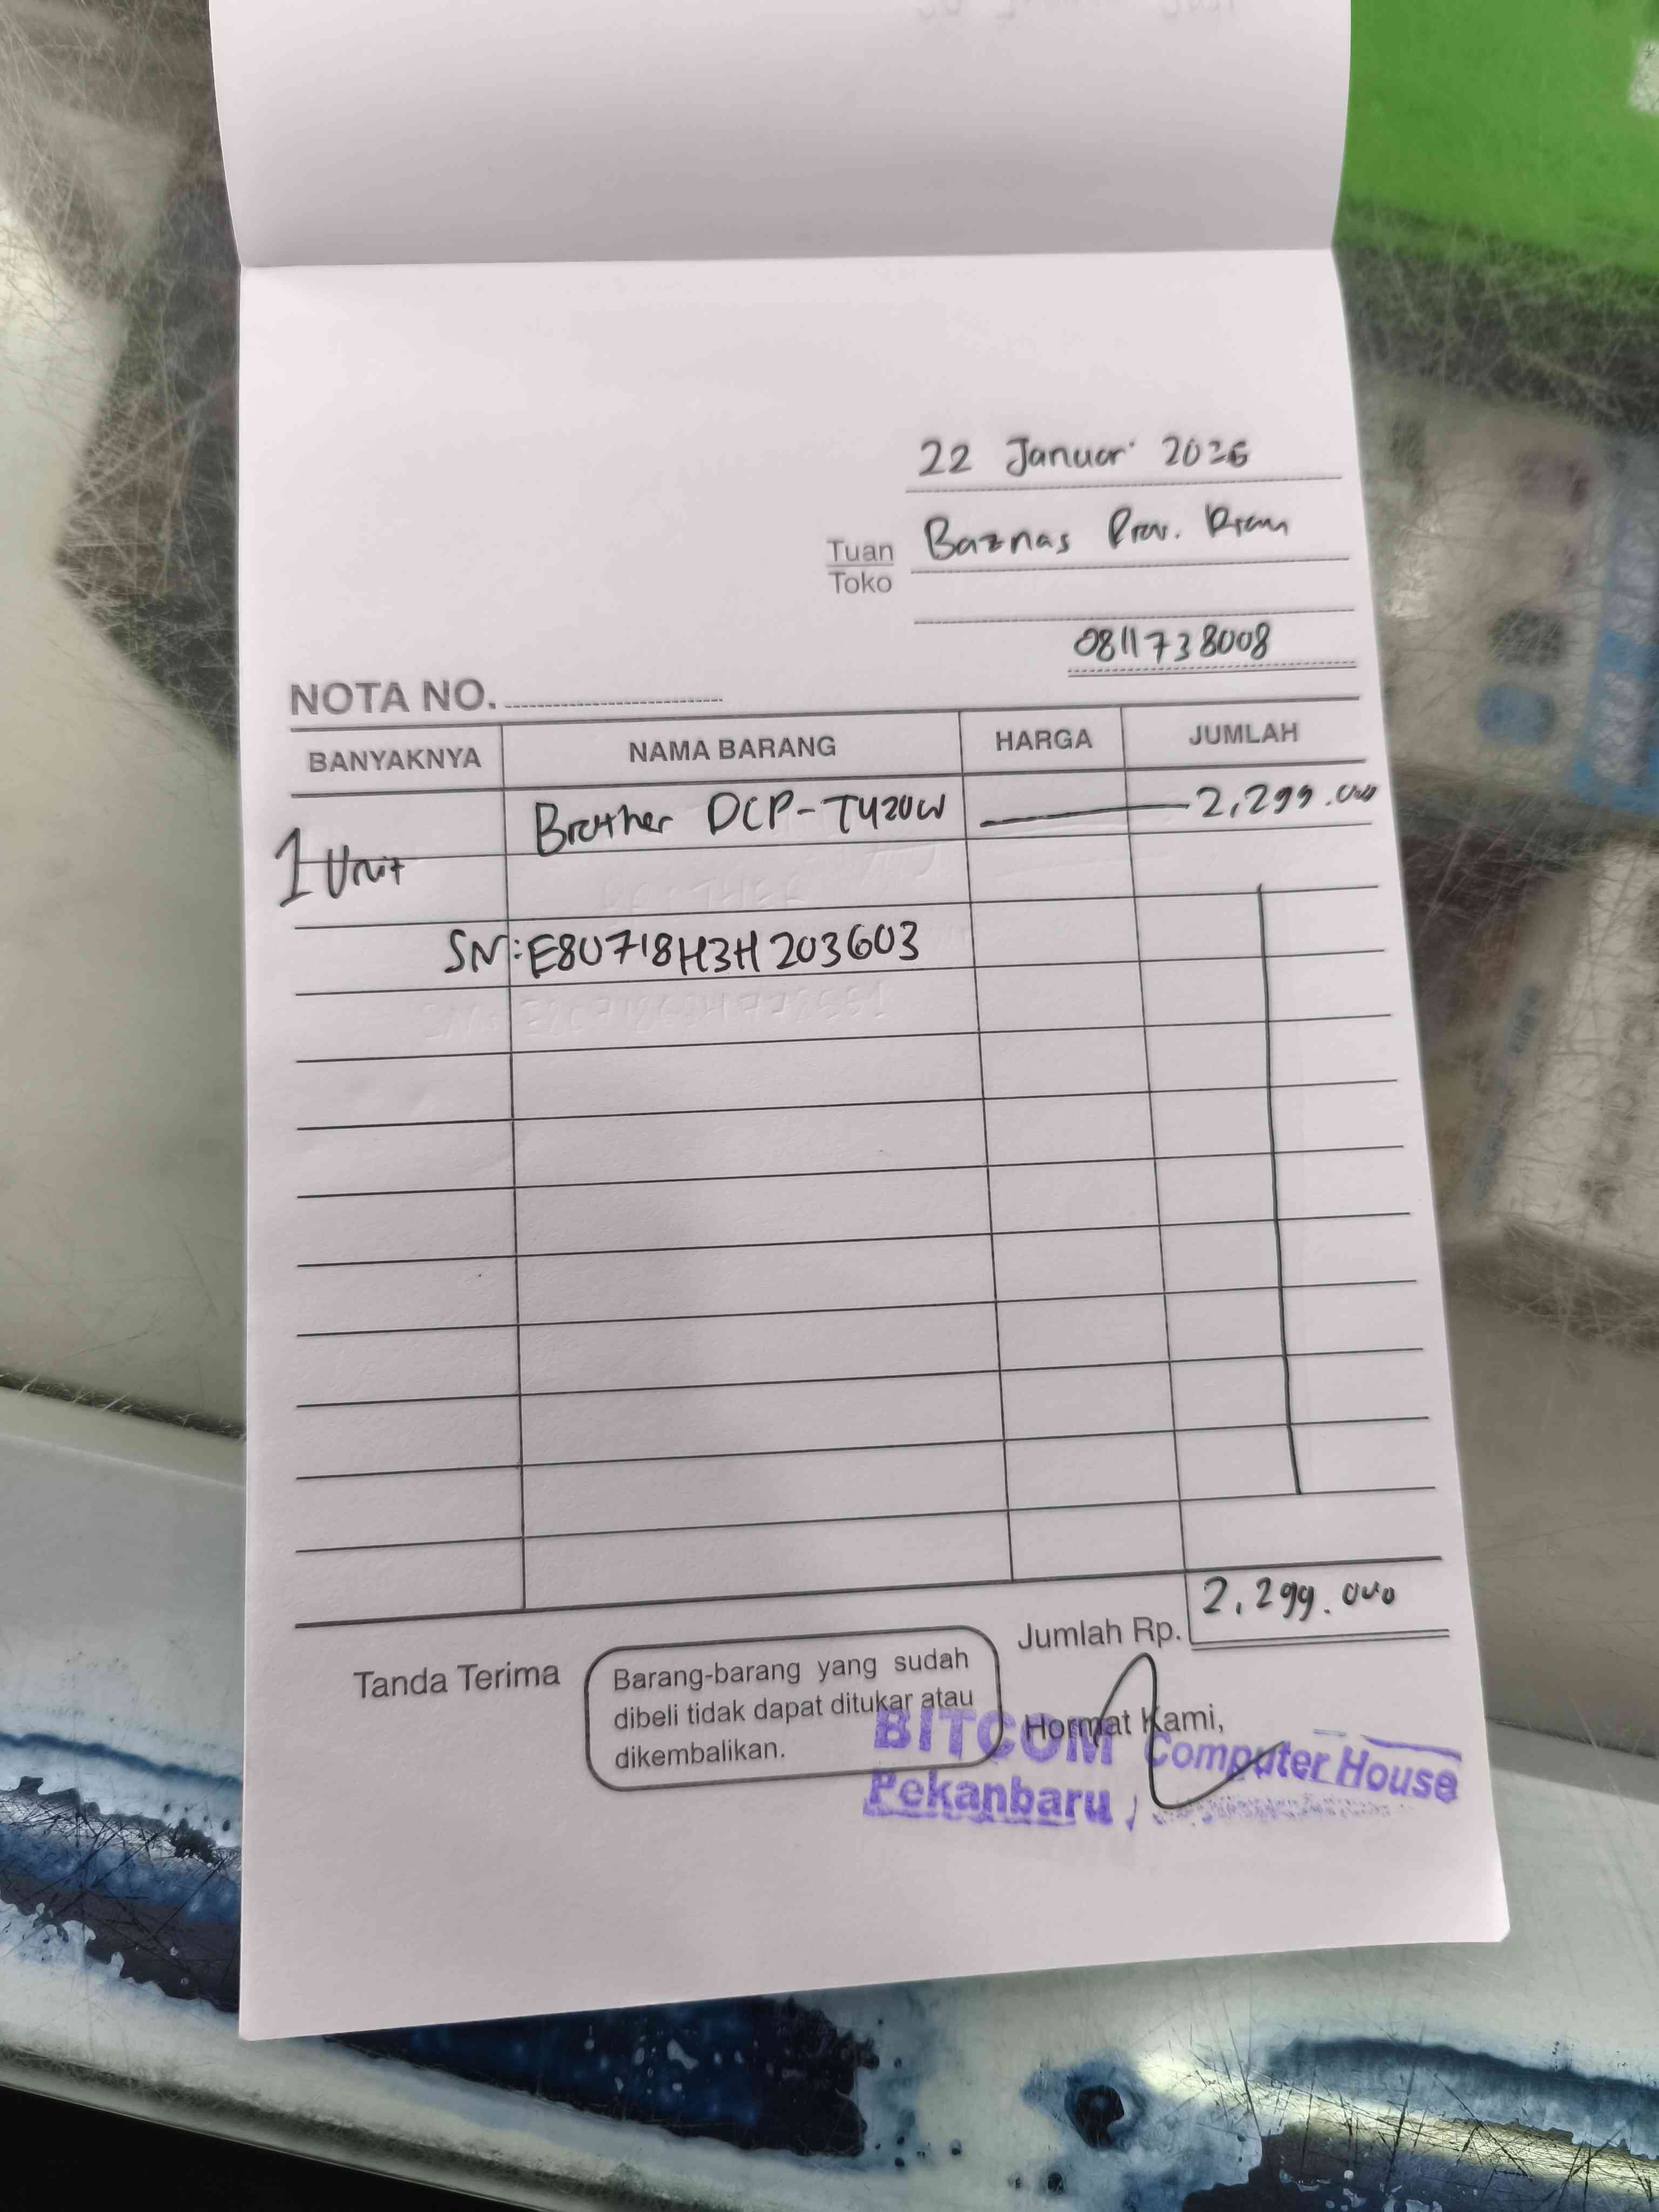 22 Januari 2026
Tuan
Toko
Baznas Prov. Riau
0811738008
NOTA NO.
BANYAKNYA NAMA BARANG HARGA JUMLAH
1 Unit Brother DCP-T420W 2,299.000
SN:E80718H3H203603
Jumlah Rp. 2,299.000
Tanda Terima
Barang-barang yang sudah
dibeli tidak dapat ditukar atau
dikembalikan.
Hormat Kami,
BITCOM Computer House
Pekanbaru